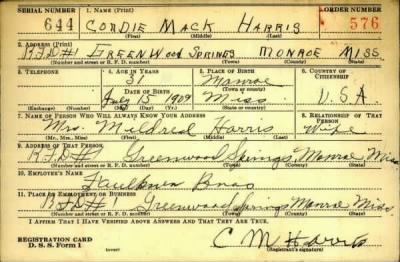 SERIAL NUMBER 1. NAME (Print) ORDER NUMBER
644 CORDIE MACK HARRIS 576
(First) (Middle) (Last)
2. ADDRESS (Print)
R.F.D#1 GREENWOOD SPRINGS MONROE MISS
(Number and street or R. F. D. number) (Town) (County) (State)
3. TELEPHONE 4. AGE IN YEARS 5. PLACE OF BIRTH 6. COUNTRY OF CITIZENSHIP
31 Monroe
DATE OF BIRTH (Town or county)
July 15 1909 Miss U.S.A.
(Exchange) (Number) (Mo.) (Day) (Yr.) (State or country)
7. NAME OF PERSON WHO WILL ALWAYS KNOW YOUR ADDRESS 8. RELATIONSHIP OF THAT PERSON
Mrs. Mildred Harris Wife
(Mr., Mrs., Miss) (First) (Middle) (Last)
9. ADDRESS OF THAT PERSON
R.F.D#1 Greenwood Springs, Monroe Miss
(Number and street or R. F. D. number) (Town) (County) (State)
10. EMPLOYER'S NAME
Faulkner Bros
11. PLACE OF EMPLOYMENT OR BUSINESS
R.F.D#1 Greenwood Springs Monroe Miss
(Number and street or R. F. D. number) (Town) (County) (State)
I AFFIRM THAT I HAVE VERIFIED ABOVE ANSWERS AND THAT THEY ARE TRUE.
REGISTRATION CARD
D. S. S. Form 1
C M Harris
(Registrant's signature)